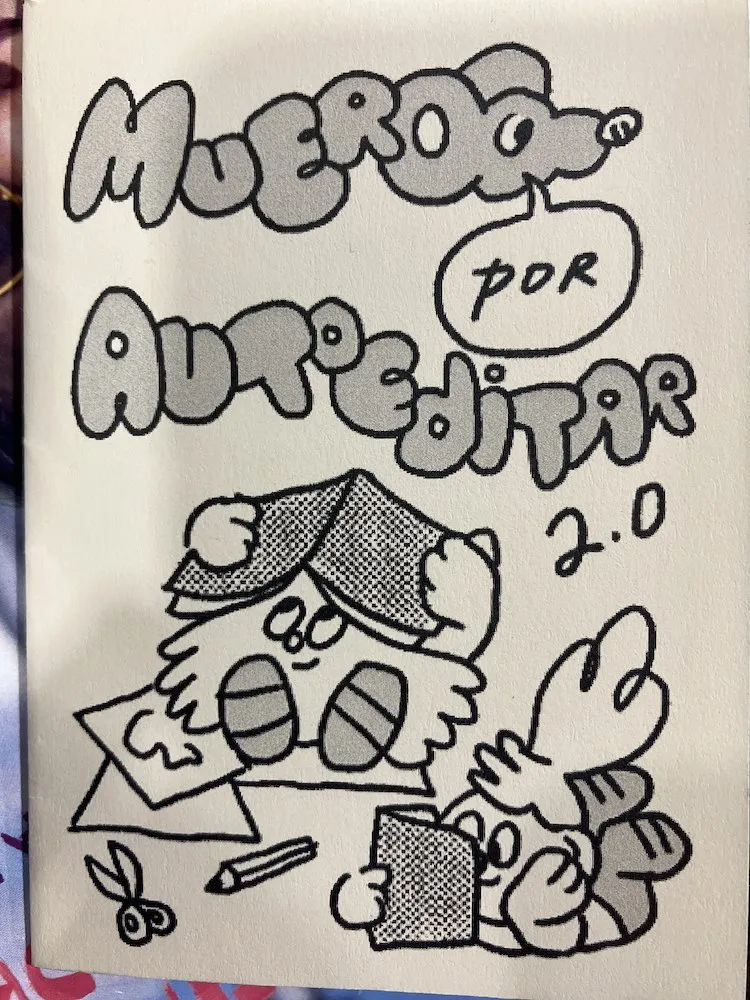 MUERO
POR
AUTOEDITAR
2.0